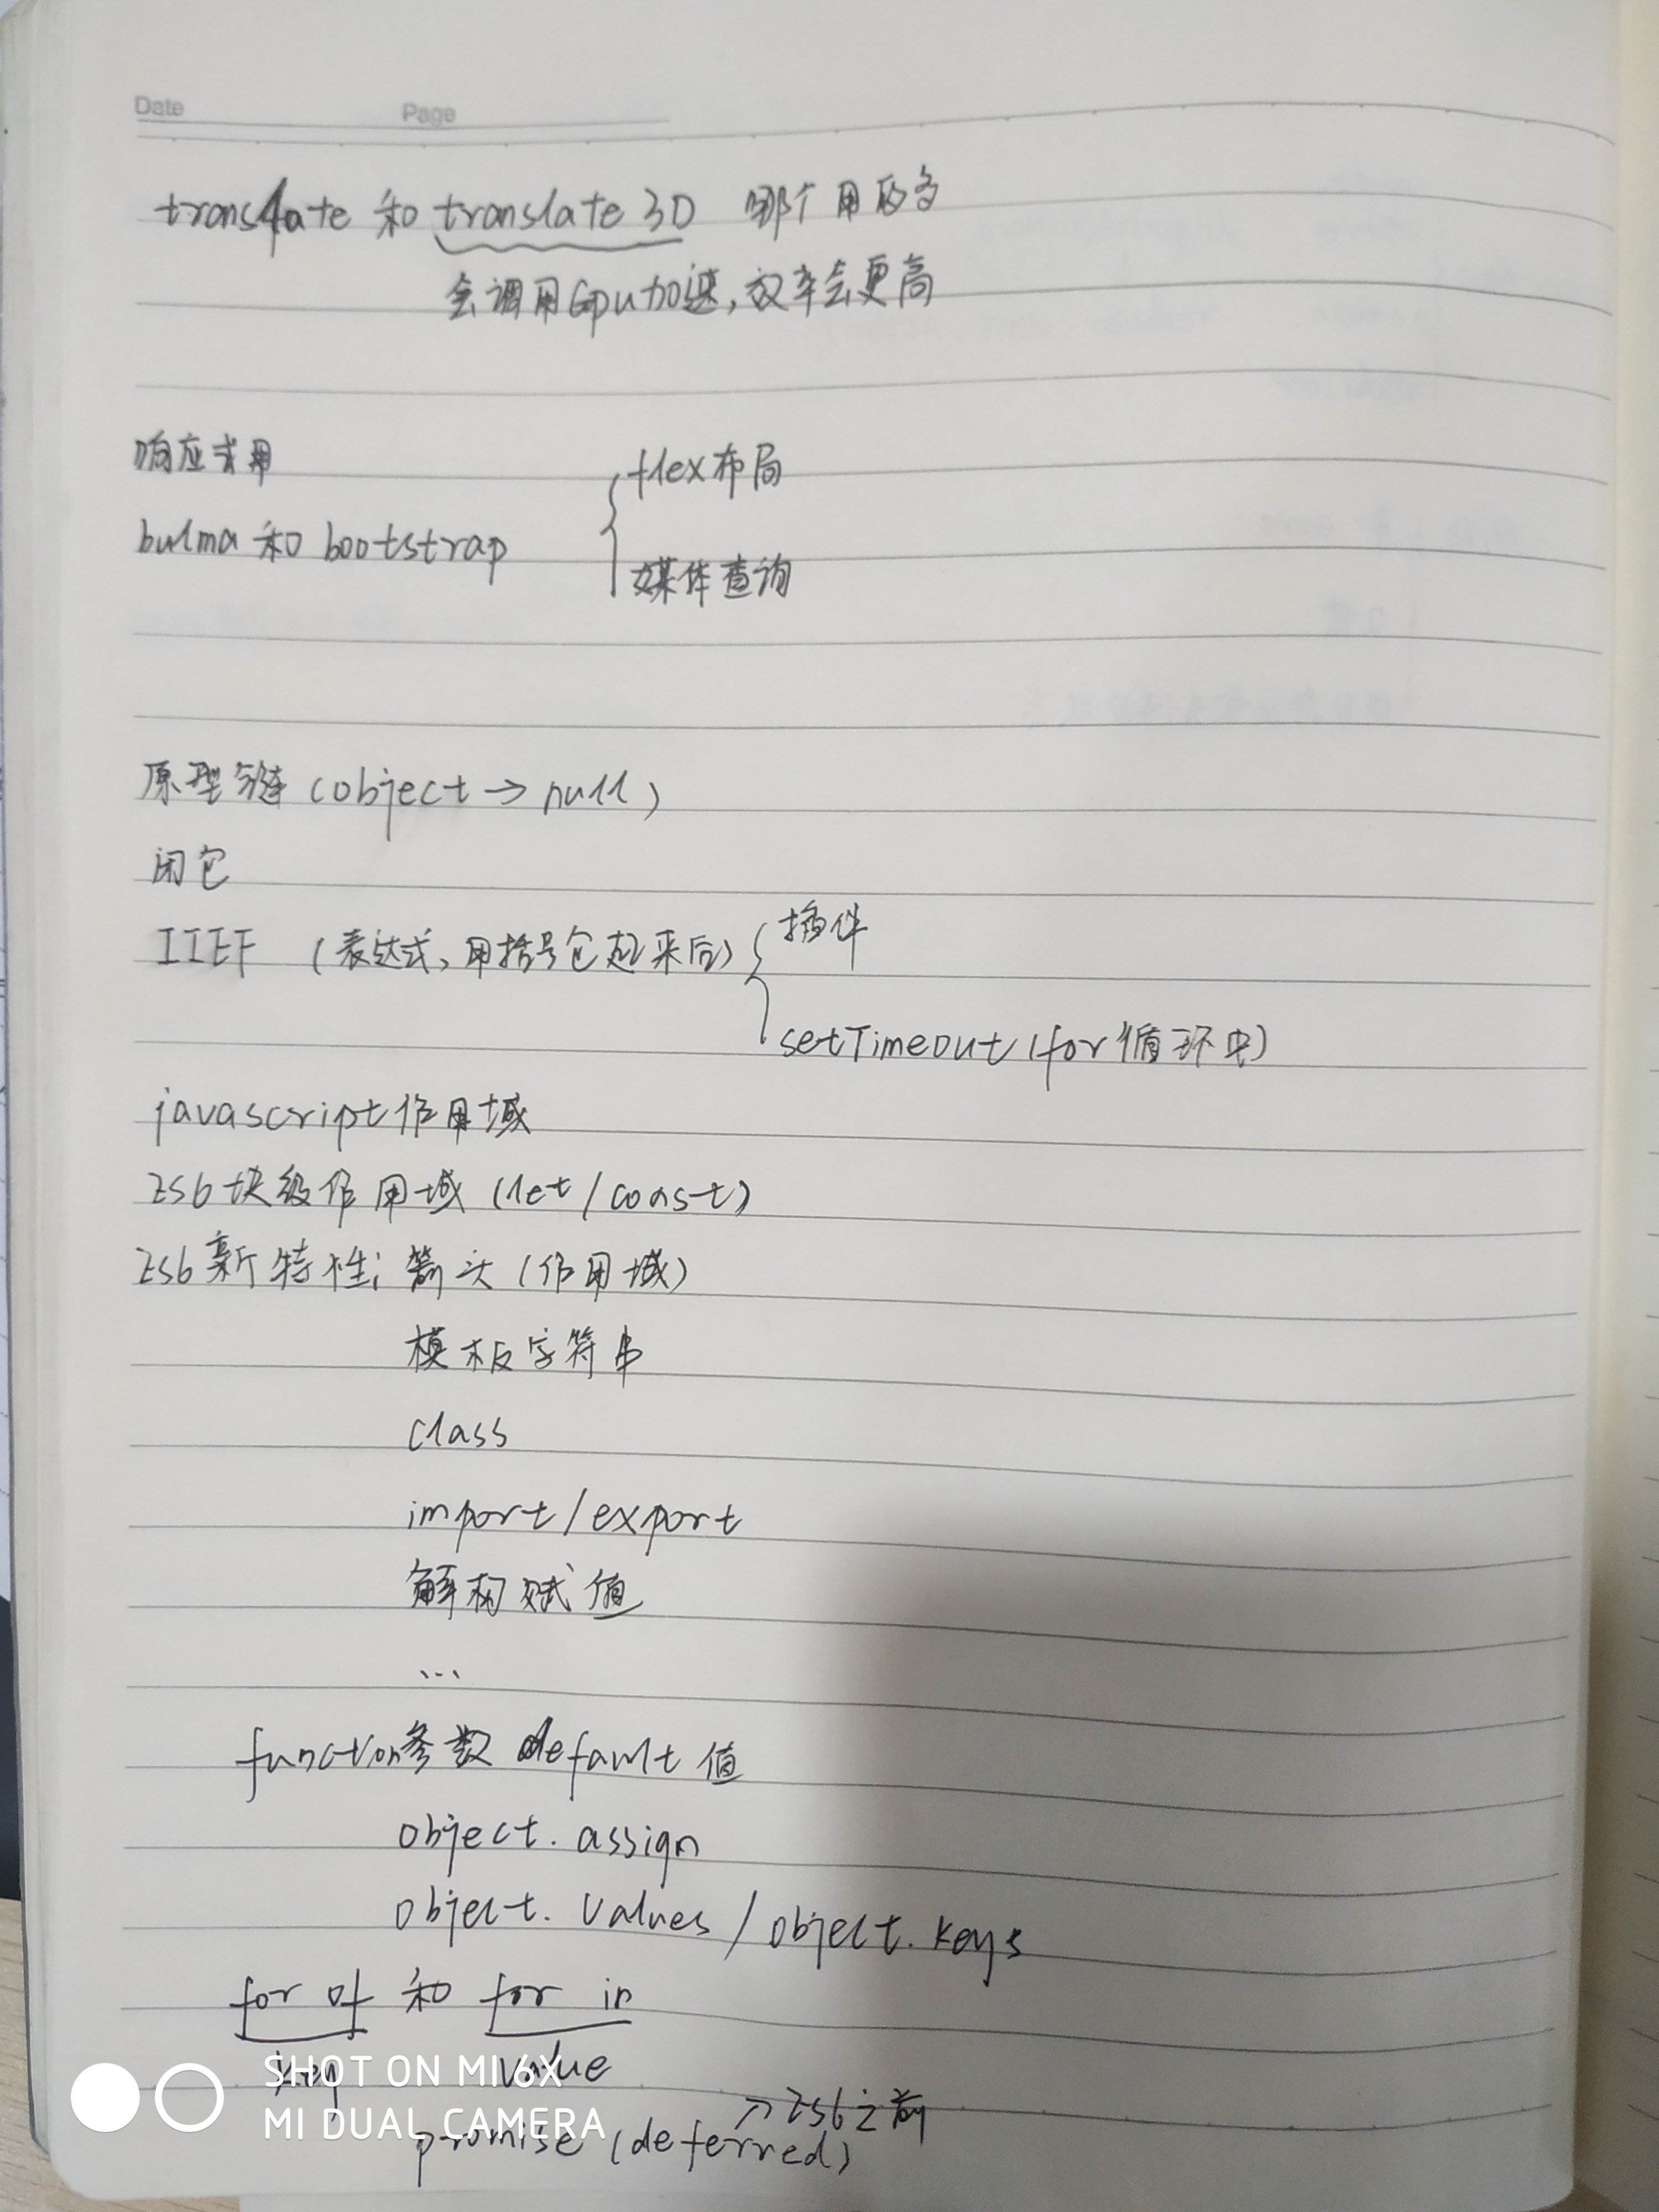 Date Page
translate 和 translate 3D 哪个用的多
会调用Gpu加速,效率会更高
响应式用
flex布局
bulma 和 bootstrap
媒体查询
原型链 (object → null)
闭包
IIEF (表达式,用括号包起来后)
插件
setTimeout (for循环中)
javascript作用域
ES6块级作用域 (let/const)
ES6新特性: 箭头 (作用域)
模板字符串
class
import/export
解构赋值
...
function参数 default 值
object. assign
object. values / object. keys
for of 和 for in
key value
→ES6之前
promise (deferred)
SHOT ON MI 6X
MI DUAL CAMERA